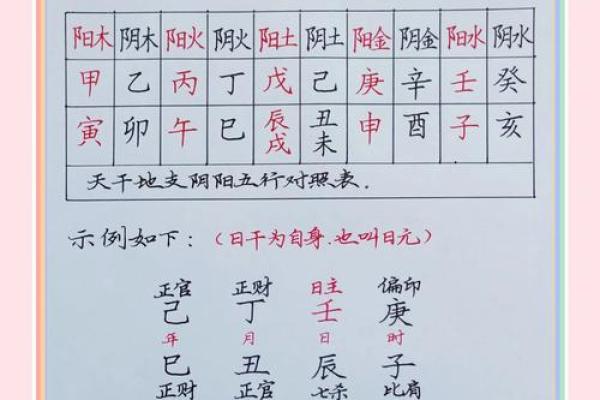 阳木 阴木 阳火 阴火 阳土 阴土 阳金 阴金 阳水 阴水
甲 乙 丙 丁 戊 己 庚 辛 壬 癸
寅 卯 午 巳 辰戌 丑未 申 酉 子 亥
天干地支阴阳五行对照表.
示例如下：（日干为自身.也叫日元）
正官 正财 日主 偏印
己 丁 壬 庚
年 月 日 时
巳 丑 辰 子
正财 正官 七杀 比肩